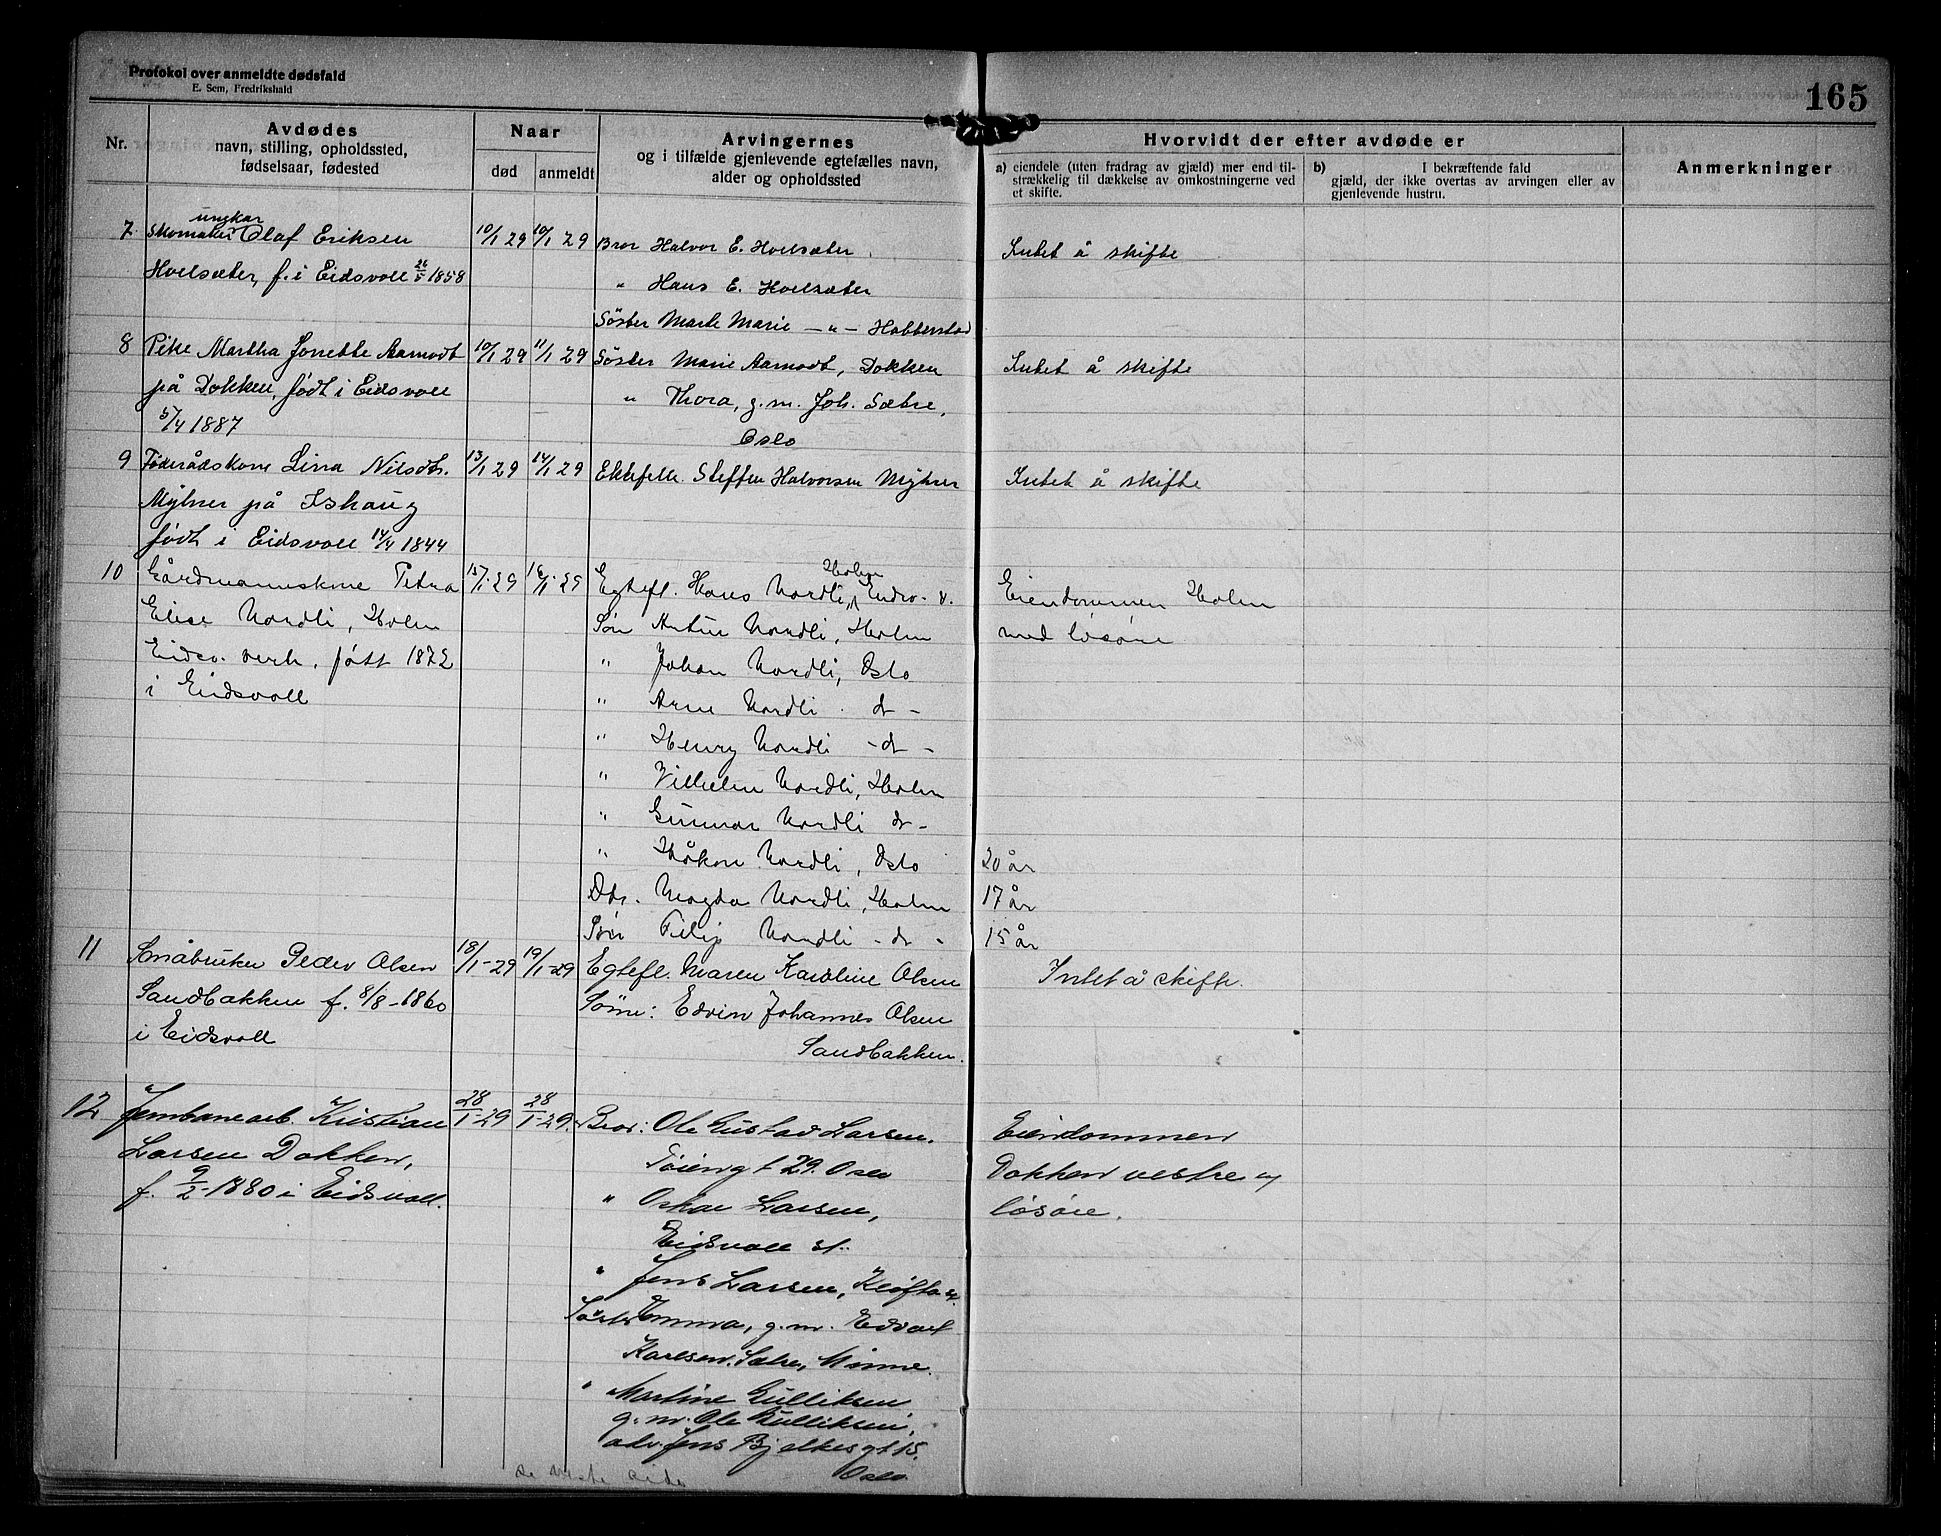 Protokol over anmeldte dødsfald
E. Sem, Fredrikshald
165
Nr.
Avdødes
navn, stilling, opholdssted,
fødselsaar, fødested
Naar
død
anmeldt
Arvingernes
og i tilfælde gjenlevende egtefælles navn,
alder og opholdssted
Hvorvidt der efter avdøde er
a) eiendele (uten fradrag av gjæld) mer end til-
strækkelig til dækkelse av omkostningerne ved
et skifte.
b) I bekræftende fald
gjæld, der ikke overtas av arvingen eller av
gjenlevende hustru.
Anmerkninger
ungkar
7 Skomaker Olaf Eriksen 10/1 29 10/1 29 Bror Halvor E. Hvelsæter Intet å skifte
Hvelsæter, f. i Eidsvoll 26/5 1858
" Hans E. Hvelsæter
Søster Marte Marie — " — Habberstad
8 Pike Martha Jonette Aamodt 10/1 29 11/1 29 Søster Marie Aamodt, Dokken Intet å skifte
på Dokken, født i Eidsvoll
" Thora, g. m. Joh. Sætre,
5/4 1887
Oslo
9 Føderådskone Lina Nilsdtr. 13/1 29 14/1 29 Ektefelle Steffen Halvorsen Myhrer Intet å skifte
Myhrer på Ishaug
født i Eidsvoll 14/4 1844
10 Gårdmannskone Petra 15/1-29 16/1-29 Egtefl. Hans Nordli, Holm Eidsv. v. Eiendommen Holm
Elise Nordli, Holm
Søn Artur Nordli, Holm
med løsøre
Eidsv. verk, født 1872
" Johan Nordli, Oslo
i Eidsvoll
" Arne Nordli - d -
" Henry Nordli - d -
" Vilhelm Nordli, Holm
" Gunnar Nordli d -
" Håkon Nordli, Oslo 20 år
Dtr. Magda Nordli, Holm 17 år
Søn Filip Nordli - d - 15 år
11 Småbruker Peder Olsen 18/1-29 19/1-29 Egtefl. Maren Karoline Olsen Intet å skifte.
Sandbakken f. 8/8-1860
Sønn: Edvin Johannes Olsen
i Eidsvoll
Sandbakken.
12 Jernbanearb. Kristian 28/1-29 28/1-29. Bror: Ole Gustav Larsen. Eiendommen
Larsen Dokken,
Tøieng t 29. Oslo
Dokken vestre og
f. 9/2-1880 i Eidsvoll.
" Oskar Larsen,
løsøre.
Eidsvoll st.
" Jens Larsen, Kløfta
Søster Emma, g. m. Edvart
Karlsen, Minne.
" Martine Gulliksen
g. m. Ole Gulliksen,
adr. Jens Bjelkes gt 15.
Oslo